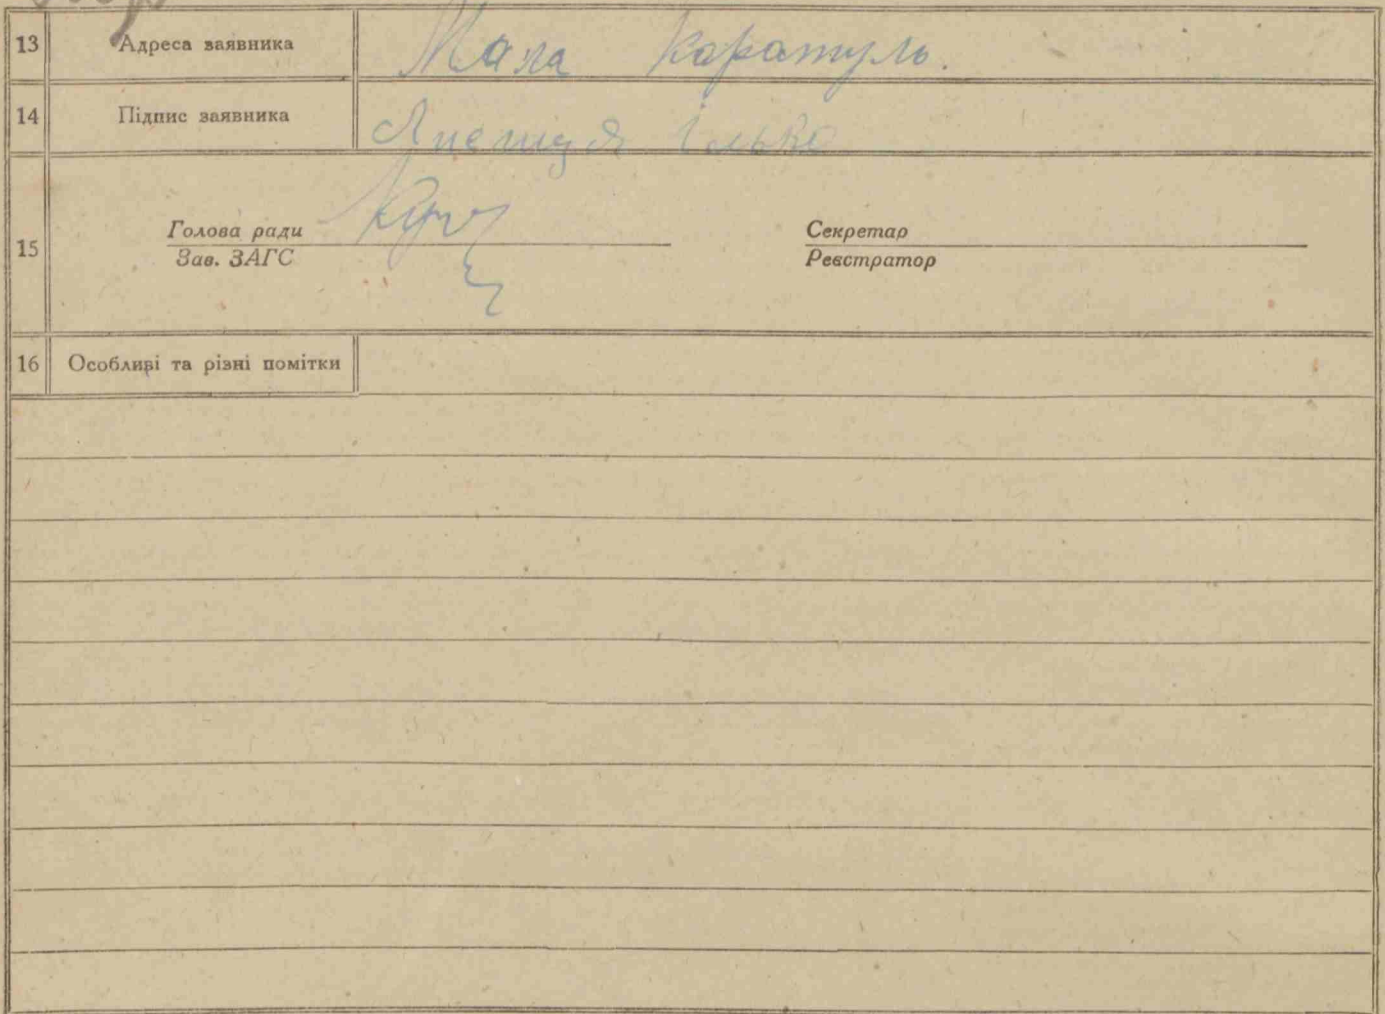 13 Адреса заявника Мала Каратуль.
14 Підпис заявника Ілько
15
Голова ради Секретар
Зав. ЗАГС Реєстратор
16 Особливі та різні помітки